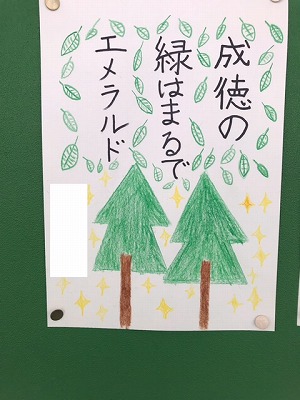 成徳の
緑はまるで
エメラルド